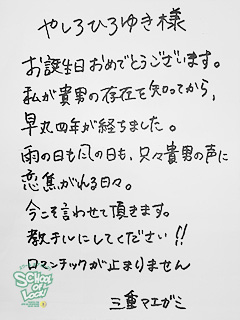 やしろひろゆき様
お誕生日おめでとうございます。
私が貴男の存在を知ってから、
早丸四年が経ちました。
雨の日も風の日も、只々貴男の声に
恋焦がれる日々。
今こそ言わせて頂きます。
教えにしてください!!
ロマンチックが止まりません
三重マエガミ
SCHOOL OF LOCK!